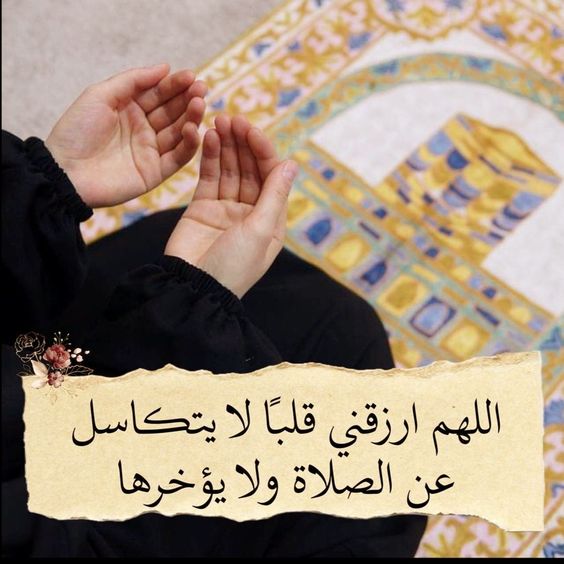 اللهم ارزقني قلبًا لا يتكاسل
عن الصلاة ولا يؤخرها